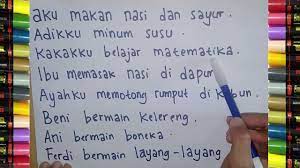 aku makan nasi dan sayur.
Adikku minum susu.
Kakakku belajar matematika.
Ibu memasak nasi di dapur
Ayahku memotong rumput di kebun.
Beni bermain kelereng.
Ani bermain boneka.
Ferdi bermain layang-layang